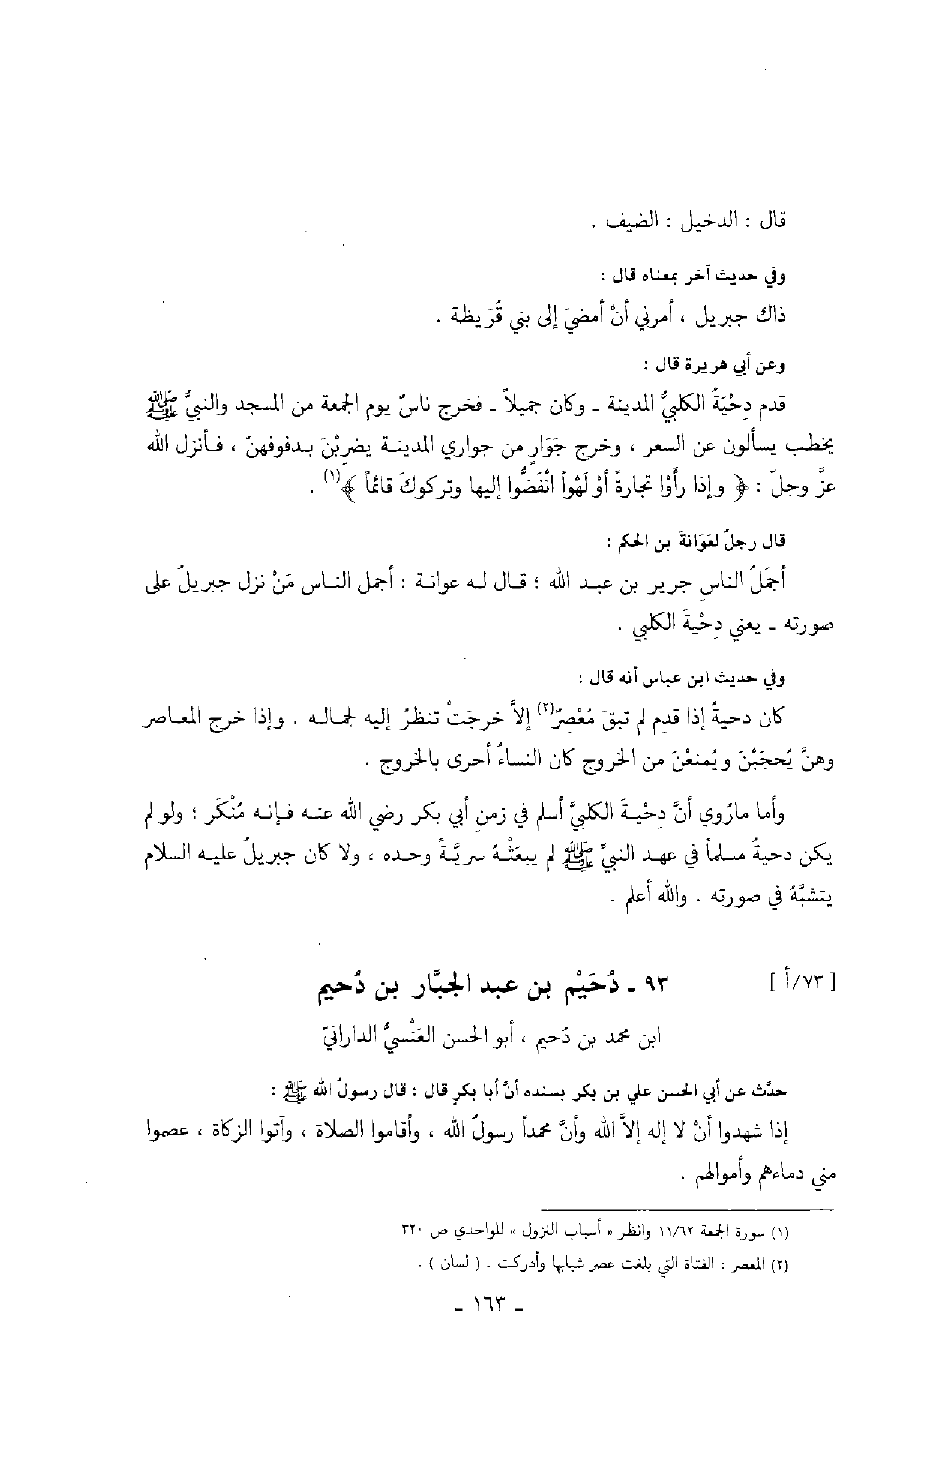 قال : الدخيل : الضيف .
وفي حديث آخر بمعناه قال :
ذاك جبريل ، أمرني أنْ أمضيَ إلى بني قُرَيظة .
وعن أبي هريرة قال :
قدم دِحْيَةُ الكلبيُّ المدينة ـ وكان جميلاً ـ فخرج ناسٌ يوم الجمعة من المسجد والنبيُّ ﷺ
يخطب يسألون عن السعر ، وخرج جَوَارٍ من جواري المدينة يضرِبْنَ بدفوفهنّ ، فأنزل الله
عزَّ وجلّ : ﴿ وإذا رأَوْا تجارةً أوْ لَهْواً انْفَضُّوا إليها وتركوكَ قائماً ﴾(١) .
قال رجلٌ لعَوَانةَ بن الحكم :
أجمَلُ الناسِ جرير بن عبد الله ؛ قال له عوانة : أجمل الناس مَنْ نزل جبريلُ على
صورته ـ يعني دِحْيَةَ الكلبي .
وفي حديث ابن عباس أنه قال :
كان دحيةُ إذا قدم لم تبقَ مُعْصِرٌ(٢) إلاَّ خرجَتْ تنظرُ إليه لجماله . وإذا خرج المعاصر
وهنَّ يُحجَبْنَ ويُمنعْنَ من الخروج كان النساءُ أحرى بالخروج .
وأما مارُوي أنَّ دحْيةَ الكلبيَّ أسلم في زمن أبي بكر رضي الله عنه فإنه مُنْكَر ؛ ولو لم
يكن دحيةُ مسلماً في عهد النبيِّ ﷺ لم يبعَثْهُ سريَّةً وحده ، ولا كان جبريلُ عليه السلام
يتشبَّهُ في صورته . والله أعلم .
[ ٧٣/أ ] ٩٣ ـ دُحَيْم بن عبد الجبَّار بن دُحيم
ابن محمد بن دُحيم ، أبو الحسن العَنْسيُّ الدارانيّ
حدَّث عن أبي الحسن علي بن بكر بسنده أنَّ أبا بكرٍ قال : قال رسولُ الله ﷺ :
إذا شهدوا أنْ لا إله إلاَّ الله وأنَّ محمداً رسولُ الله ، وأقاموا الصلاة ، وآتوا الزكاة ، عصموا
مني دماءهم وأموالهم .
(١) سورة الجمعة ١١/٦٢ وانظر « أسباب النزول » للواحدي ص ٣٢٠
(٢) المعصر : الفتاة التي بلغت عصر شبابها وأدركت . ( لسان ) .
ـ ١٦٣ ـ